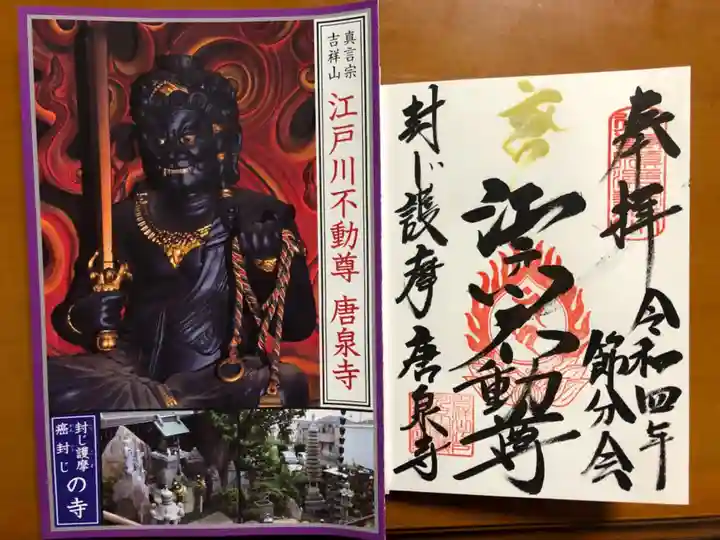 真言宗
吉祥山
江戸川不動尊 唐泉寺
封じ護摩
癌封じ
の寺
奉拝
令和四年
節分会
江戸川不動尊
封じ護摩 唐泉寺